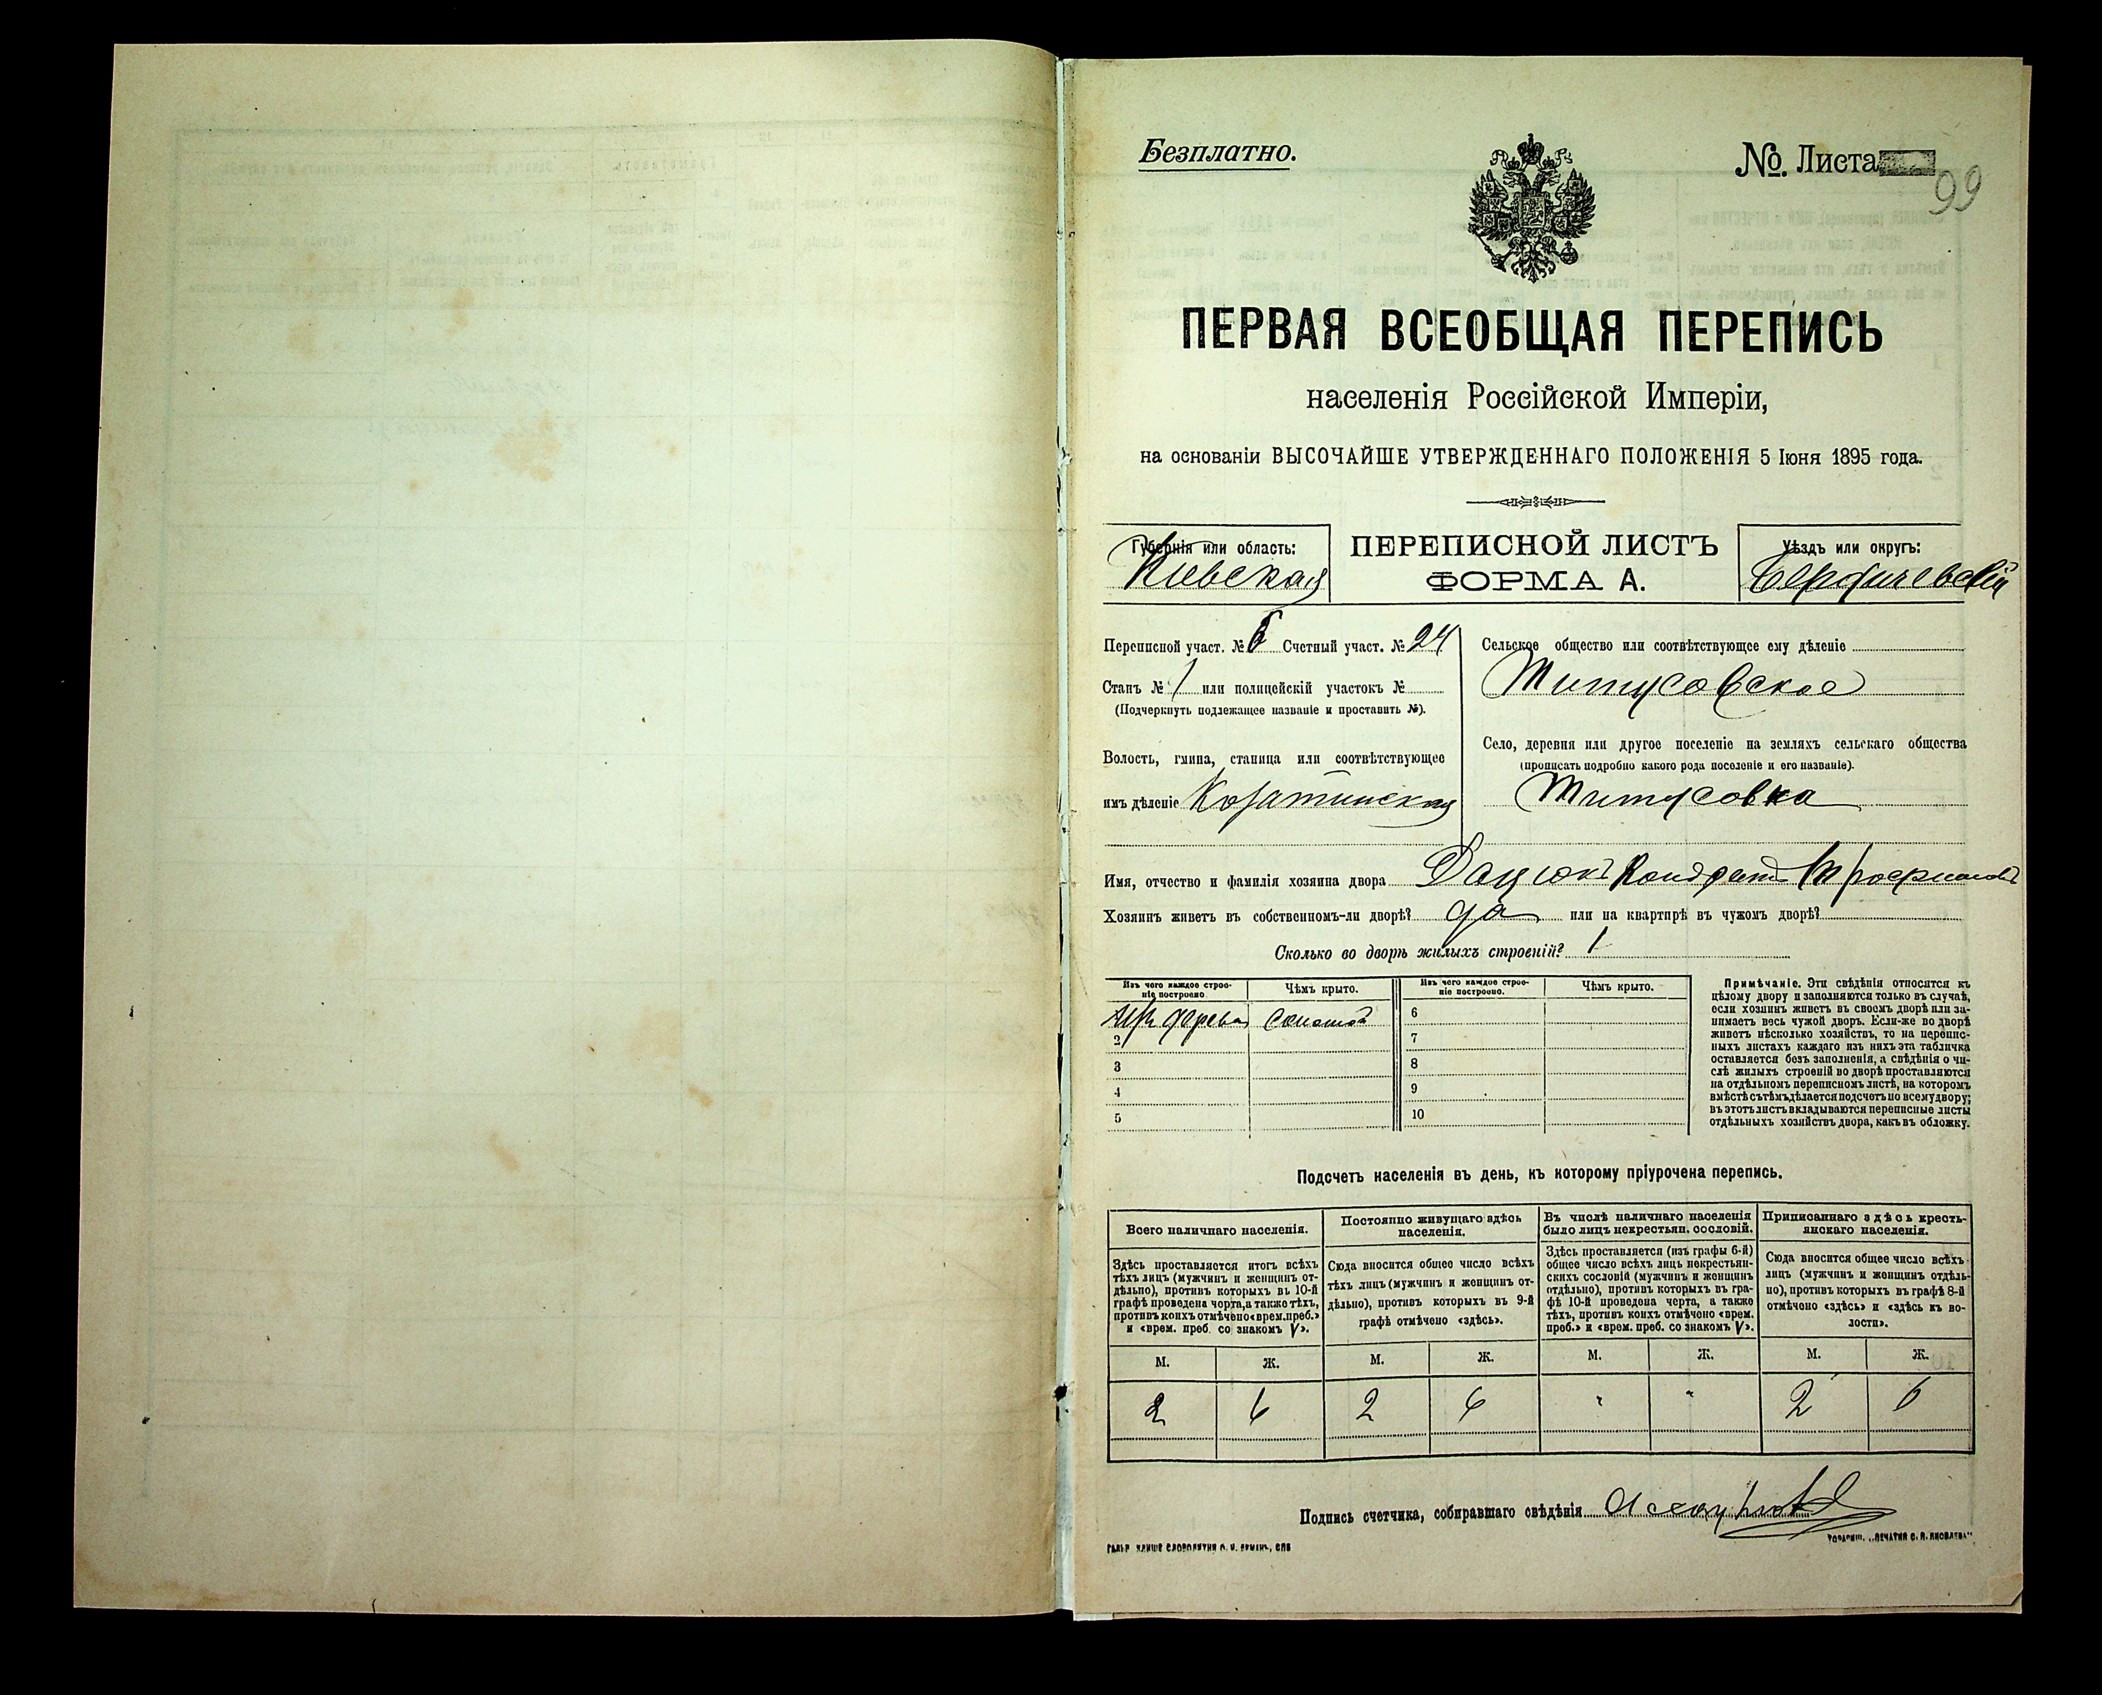 Безплатно.
№. Листа
99
ПЕРВАЯ ВСЕОБЩАЯ ПЕРЕПИСЬ
населенія Россійской Имперіи,
на основаніи ВЫСОЧАЙШЕ УТВЕРЖДЕННАГО ПОЛОЖЕНІЯ 5 Іюня 1895 года.
Губернія или область:
Кіевская
ПЕРЕПИСНОЙ ЛИСТЪ
ФОРМА А.
Уѣздъ или округъ:
Бердичевскій
Переписной участ. № 6 Счетный участ. № 24
Станъ № 1 или полицейскій участокъ №
(Подчеркнуть подлежащее названіе и проставить №).
Волость, гмина, станица или соотвѣтствующее
имъ дѣленіе Козатинская
Сельское общество или соотвѣтствующее ему дѣленіе
Титусовское
Село, деревня или другое поселеніе на земляхъ сельскаго общества
(прописать подробно какого рода поселеніе и его названіе).
Титусовка
Имя, отчество и фамилія хозяина двора Дацюкъ Кондратъ
Хозяинъ живетъ въ собственномъ-ли дворѣ? да или на квартирѣ въ чужомъ дворѣ?
Сколько во дворѣ жилыхъ строеній? 1
Изъ чего каждое строе-
ніе построено
Чѣмъ крыто.
Изъ чего каждое строе-
ніе построено.
Чѣмъ крыто.
дерева соломой
2
3
4
5
6
7
8
9
10
Примѣчаніе. Эти свѣдѣнія относятся къ
цѣлому двору и заполняются только въ случаѣ,
если хозяинъ живетъ въ своемъ дворѣ или за-
нимаетъ весь чужой дворъ. Если-же во дворѣ
живетъ нѣсколько хозяйствъ, то на перепис-
ныхъ листахъ каждаго изъ нихъ эта табличка
оставляется безъ заполненія, а свѣдѣнія о чи-
слѣ жилыхъ строеній во дворѣ проставляются
на отдѣльномъ переписномъ листѣ, на которомъ
вмѣстѣ съ тѣмъ дѣлается подсчетъ по всему двору;
въ этотъ листъ вкладываются переписные листы
отдѣльныхъ хозяйствъ двора, какъ въ обложку.
Подсчетъ населенія въ день, къ которому пріурочена перепись.
Всего наличнаго населенія.
Здѣсь проставляется итогъ всѣхъ
тѣхъ лицъ (мужчинъ и женщинъ от-
дѣльно), противъ которыхъ въ 10-й
графѣ проведена черта, а также тѣхъ,
противъ коихъ отмѣчено «врем. преб.»
и «врем. преб. со знакомъ V».
Постоянно живущаго здѣсь
населенія.
Сюда вносится общее число всѣхъ
тѣхъ лицъ (мужчинъ и женщинъ от-
дѣльно), противъ которыхъ въ 9-й
графѣ отмѣчено «здѣсь».
Въ числѣ наличнаго населенія
было лицъ некрестьян. сословій.
Здѣсь проставляется (изъ графы 6-й)
общее число всѣхъ лицъ некрестьян-
скихъ сословій (мужчинъ и женщинъ
отдѣльно), противъ которыхъ въ гра-
фѣ 10-й проведена черта, а также
тѣхъ, противъ коихъ отмѣчено «врем.
преб.» и «врем. преб. со знакомъ V».
Приписаннаго здѣсь кресть-
янскаго населенія.
Сюда вносится общее число всѣхъ
лицъ (мужчинъ и женщинъ отдѣль-
но), противъ которыхъ въ графѣ 8-й
отмѣчено «здѣсь» и «здѣсь къ во-
лости».
М. Ж. М. Ж. М. Ж. М. Ж.
2 6 2 6 " " 2 6
Подпись счетчика, собиравшаго свѣдѣнія